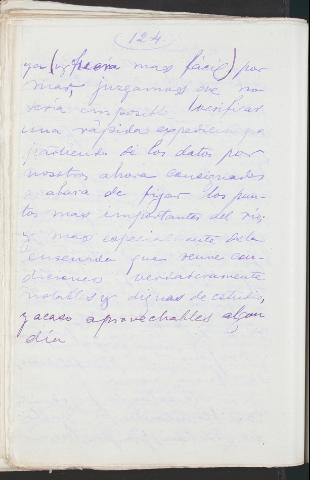 124
ya (y fuera mas fácil) por
mar, juzgamos que no
sería imposible verificar
una rápida expedición que
partiendo de los datos por
nosotros ahora consignados
acabara de fijar los pun-
tos mas importantes del rio
y mas especialmente de la
ensenada que reune con-
diciones verdaderamente
notables y dignas de estudio,
y acaso aprovechables algun
día